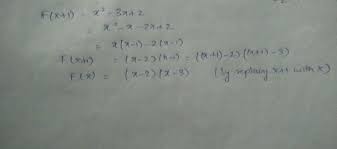 F(x+1) = x² - 3x + 2
= x² - x - 2x + 2
= x(x-1) - 2(x-1)
F(x+1) = (x-2)(x-1) = ((x+1)-3)((x+1)-2)
F(x) = (x-2)(x-3) (by replacing x+1 with x)